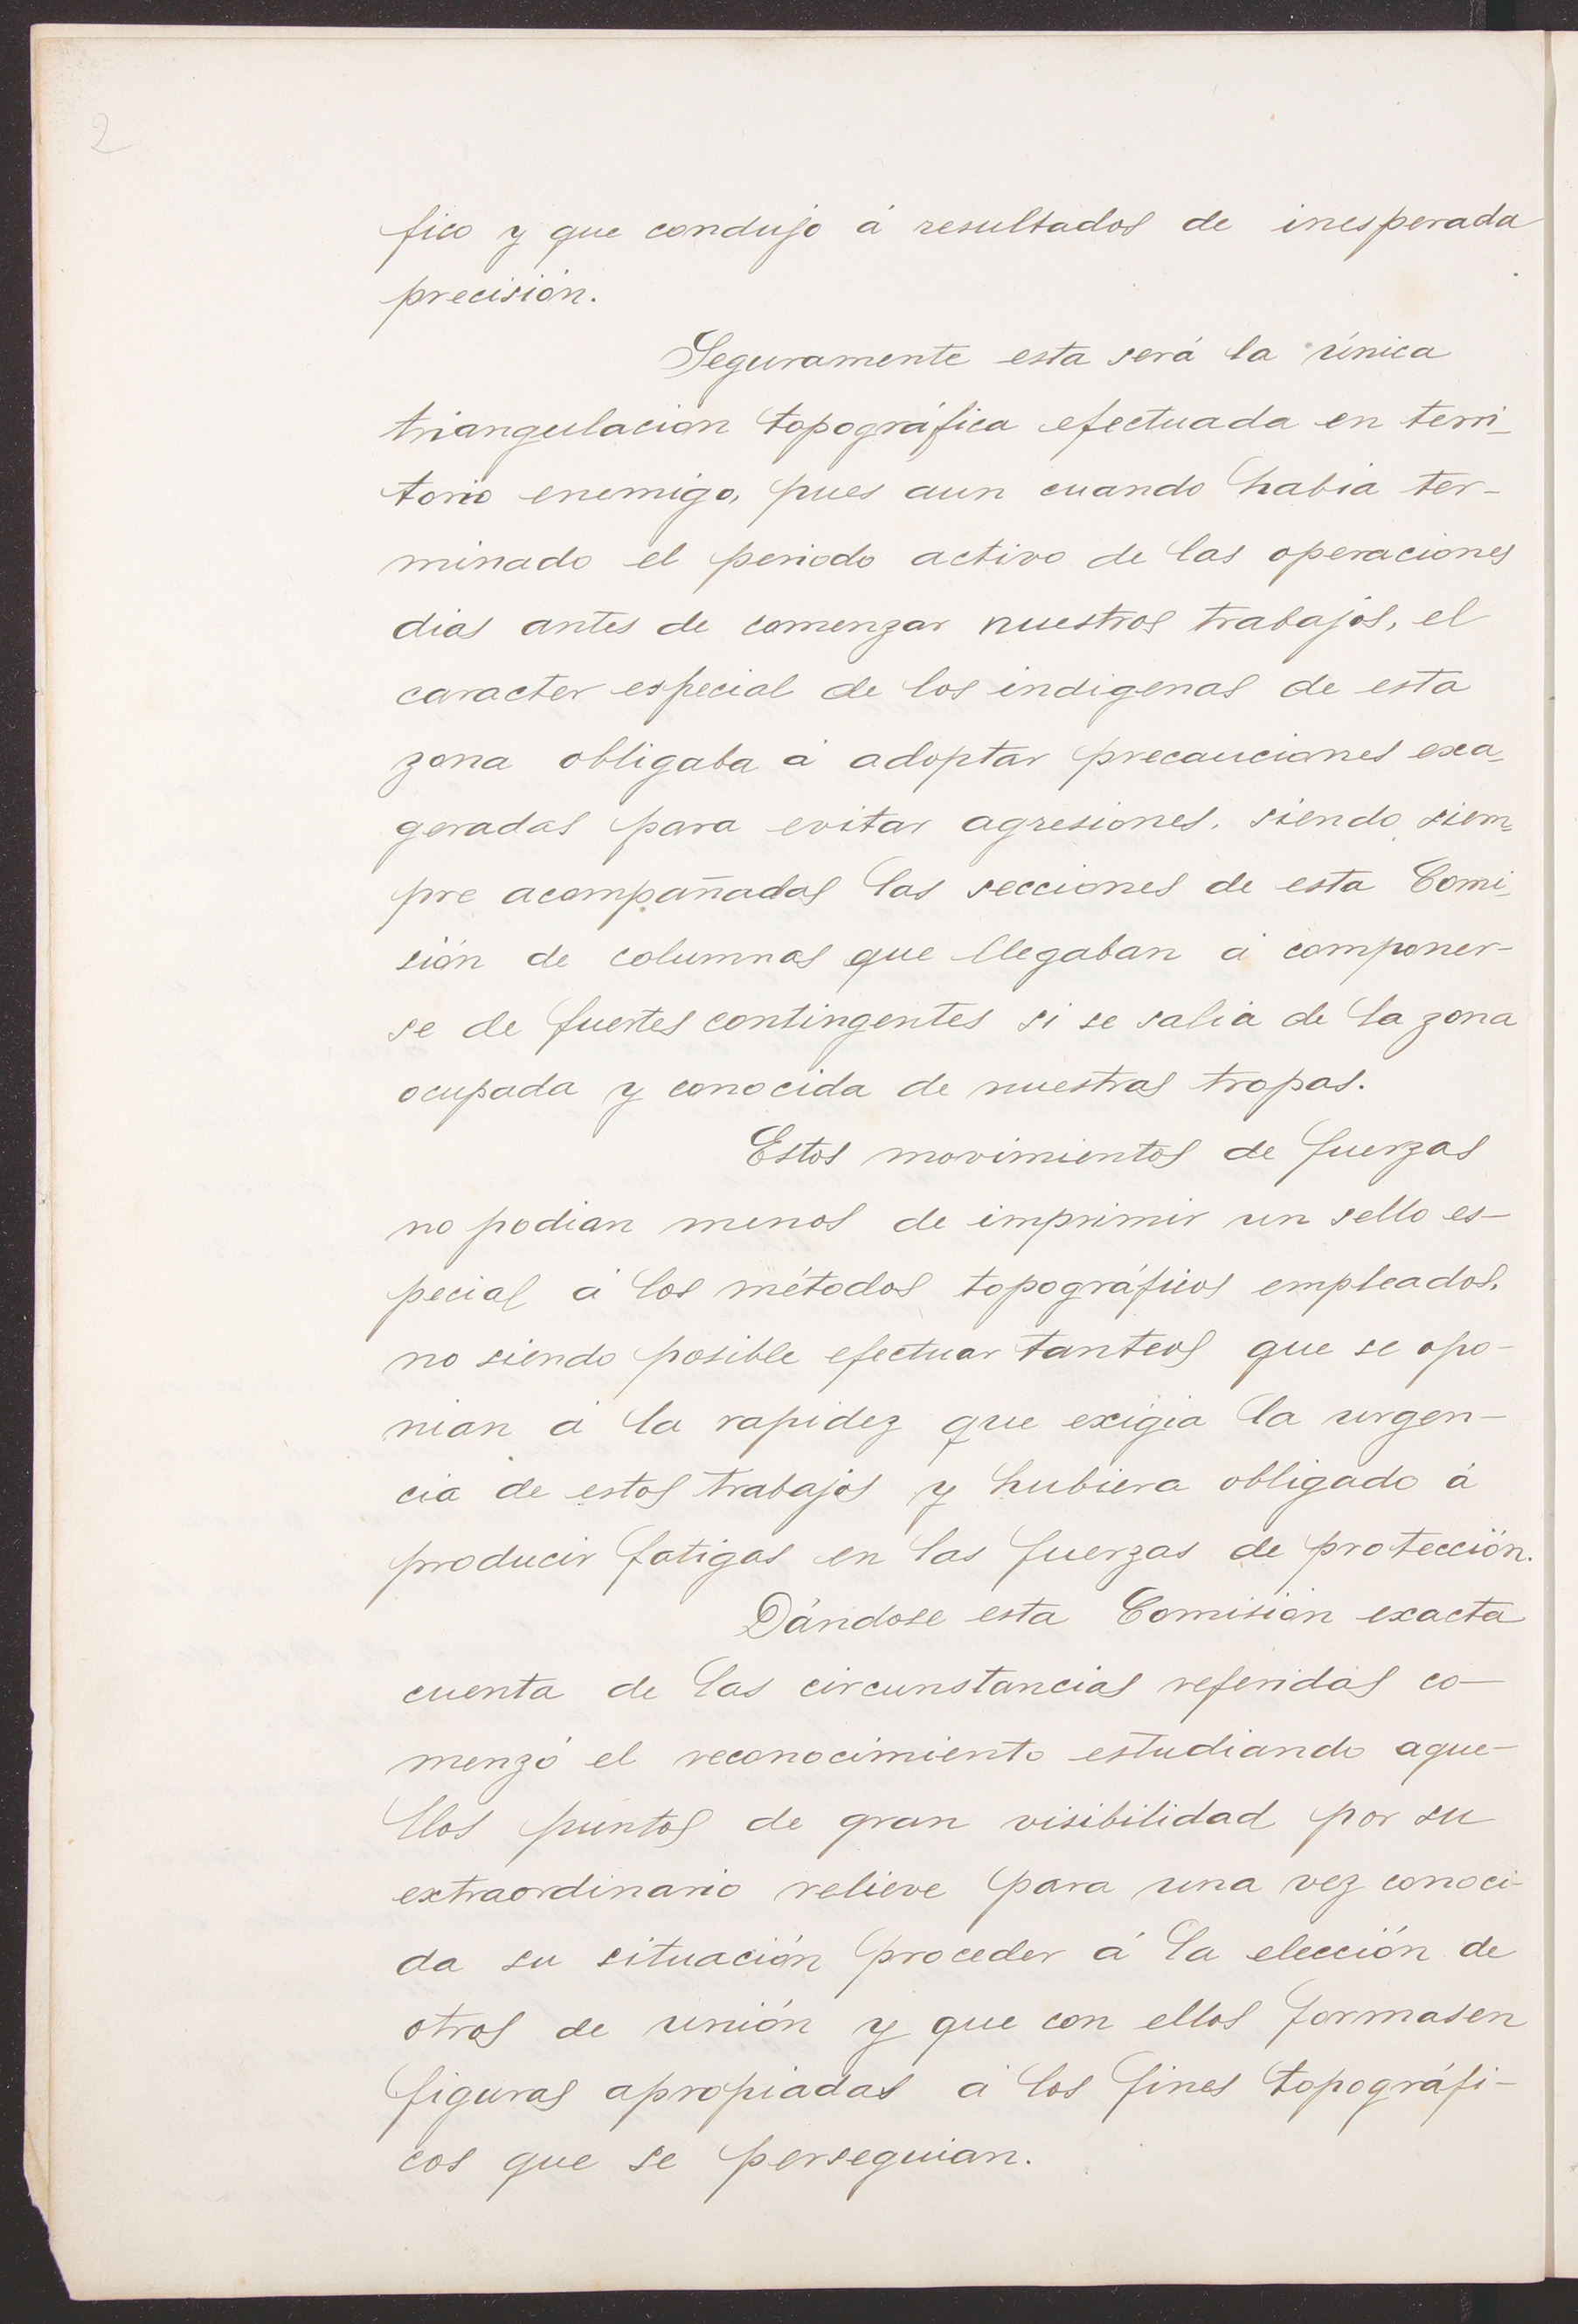 2
fico y que condujo á resultados de inesperada
precisión.
Seguramente esta será la única
triangulacion topográfica efectuada en terri-
torio enemigo, pues aun cuando habia ter-
minado el periodo activo de las operaciones
dias antes de comenzar nuestros trabajos, el
caracter especial de los indigenas de esta
zona obligaba á adoptar precauciones exa-
geradas para evitar agresiones, siendo siem-
pre acompañadas las secciones de esta Comi-
sión de columnas que llegaban á componer-
se de fuertes contingentes si se salia de la zona
ocupada y conocida de nuestras tropas.
Estos movimientos de fuerzas
no podian menos de imprimir un sello es-
pecial á los métodos topográficos empleados,
no siendo posible efectuar tanteos que se opo-
nian á la rapidez que exigia la urgen-
cia de estos trabajos y hubiera obligado á
producir fatigas en las fuerzas de protección.
Dándose esta Comisión exacta
cuenta de las circunstancias referidas co-
menzó el reconocimiento estudiando aque-
llos puntos de gran visibilidad por su
extraordinario relieve para una vez conoci-
da su situación proceder á la elección de
otros de unión y que con ellos formasen
figuras apropiadas á los fines topográfi-
cos que se perseguian.